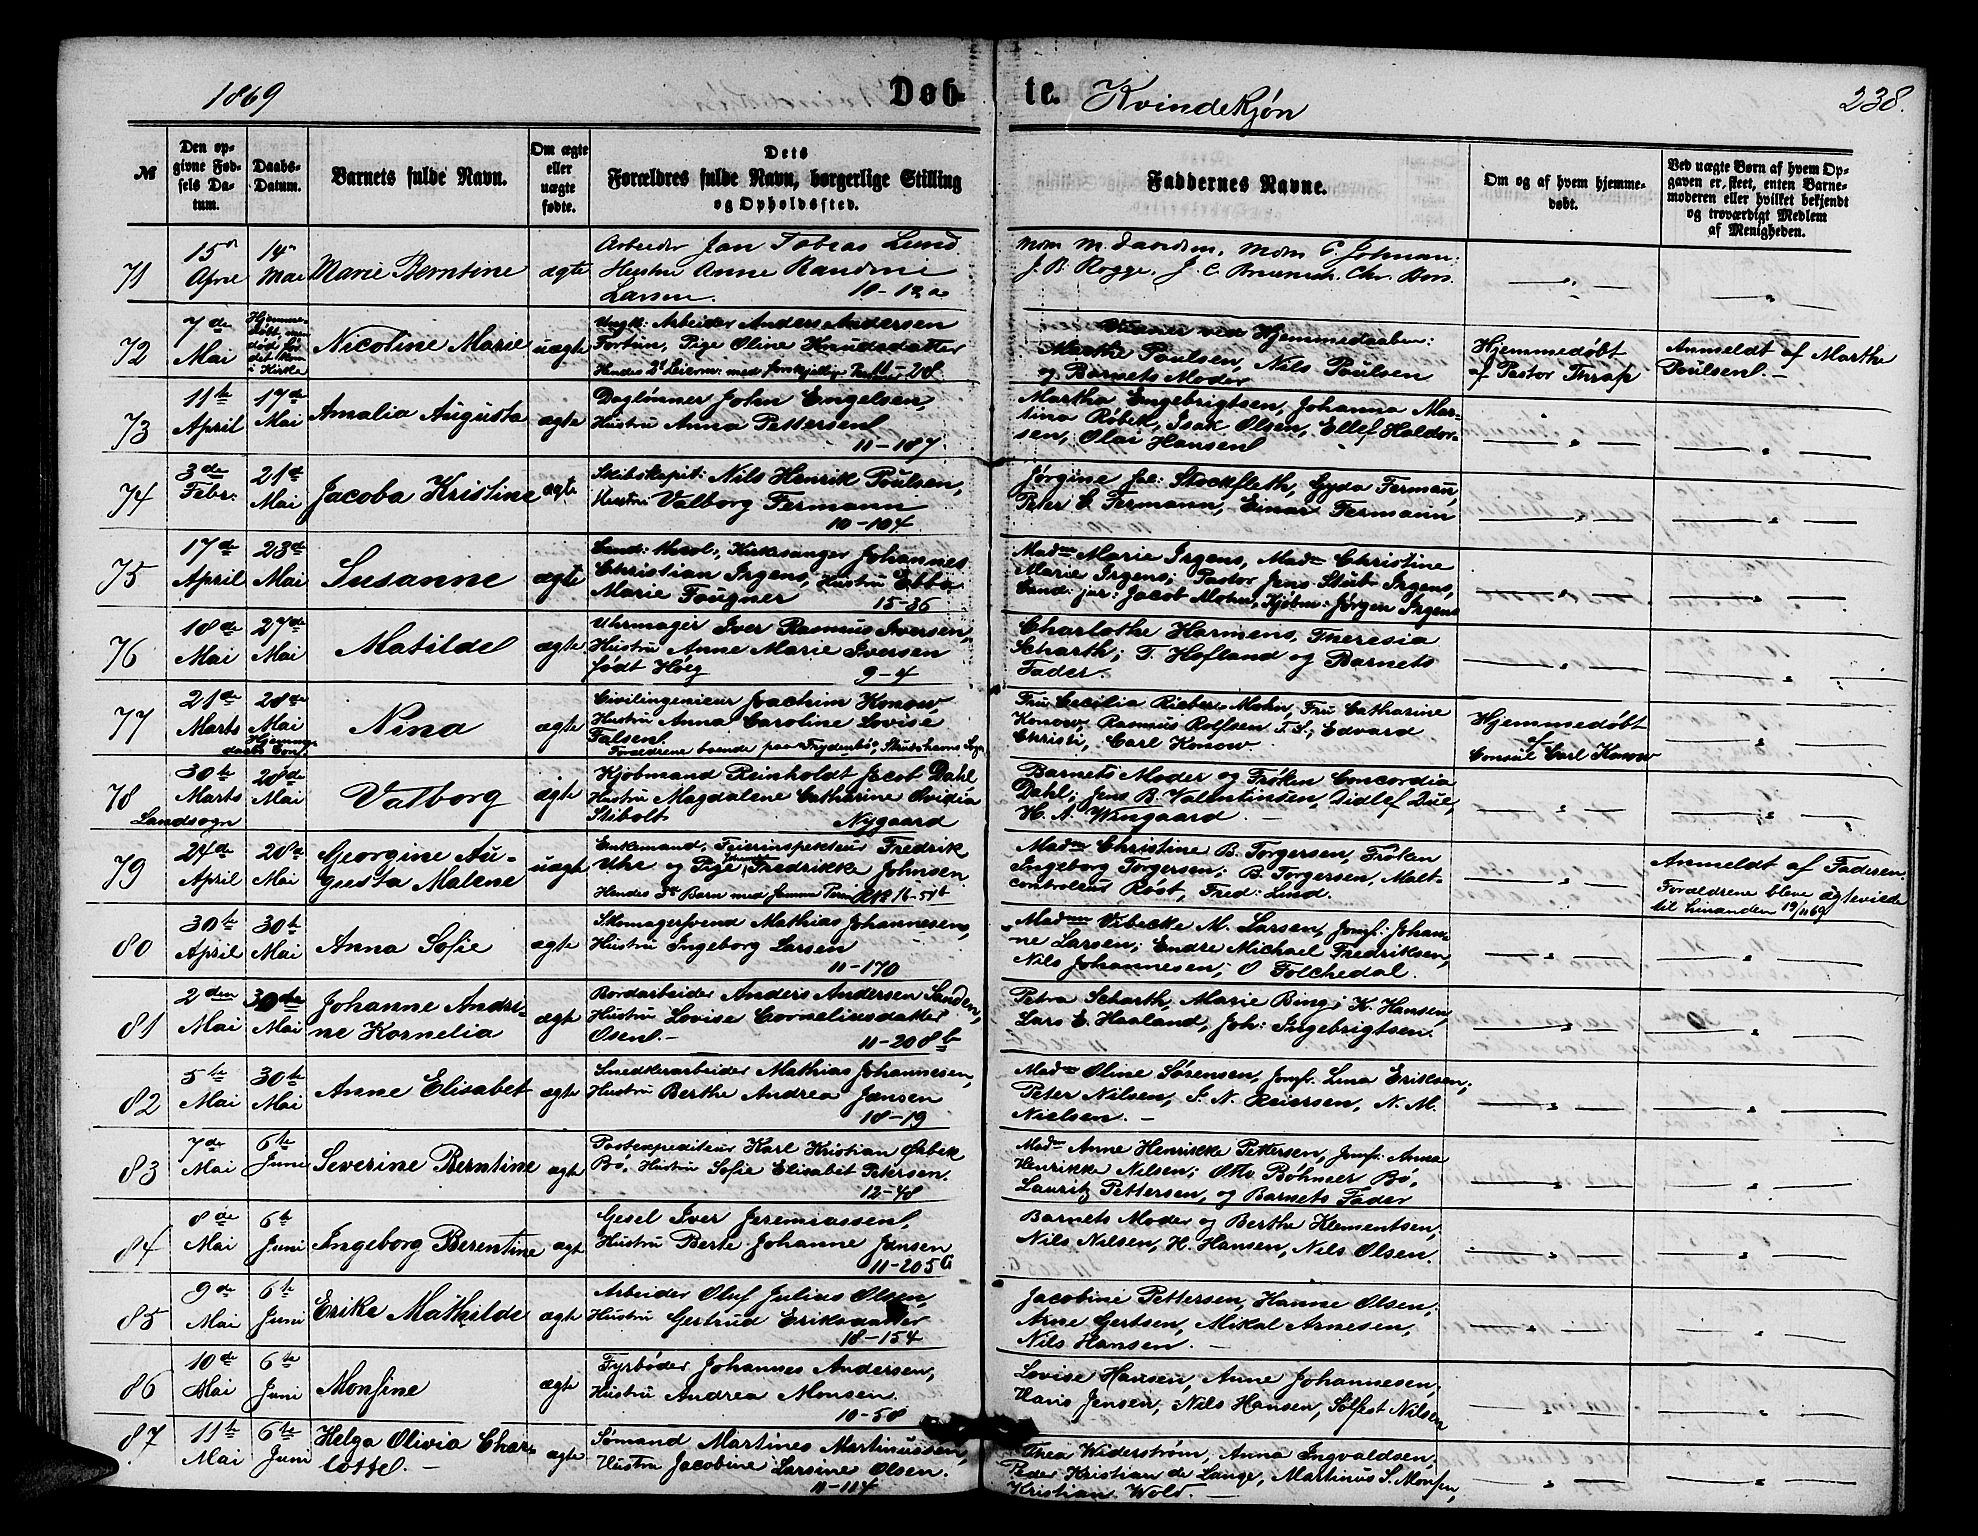 1869
Døb-
te. Kvindekjøn
238.
№
Den op-
givne Fød-
sels Da-
tum.
Daabs-
Datum.
Barnets fulde Navn.
Om ægte
eller
uægte
fødte.
Dets
Forældres fulde Navn, borgerlige Stilling
og Opholdssted.
Faddernes Navne.
Om og af hvem hjemme-
døbt.
Ved uægte Børn af hvem Op-
gaven er skeet, enten Barne-
moderen eller hvilket bekjendt
og troværdigt Medlem
af Menigheden.
71
15de
April
14de
Mai
Marie Berntine
ægte
Arbeider Jan Tobias Lund
Hustru Anne Randine
Larsen. 10-12a
J. B. Rogge, J. C.
72
7de
Mai
Hjemme-
døbt, men
død før
det kom
i Kirke
Nicoline Marie
uægte
Ungk: Arbeider Anders Andersen
Fortun, Pige Oline Knudsdatter
Hendes 2t Leierm: med forskjellig 11-28
Vidner ved Hjemmedaaben:
Marthe Poulsen, Nils Poulsen
og Barnets Moder
Hjemmedøbt
af Pastor Thrap
Anmeldt af Marthe
Poulsen. -
73
11te
April
17de
Mai
Amalia Augusta
ægte
Daglønner John Engelsen,
Hustru Anna Pettersen
11-187
Martha Engebrigtsen, Johanna Mar-
tina Røbek, Isak Olsen, Ellef Haldor-
sen, Olai Hansen
74
3de
Febr.
21de
Mai
Jacoba Kristine
ægte
Skibskapit: Nils Henrik Poulsen,
Hustru Valborg Fermann
10-104
Jørgine Stockfleth, Gyda Fermann,
Peter C. Fermann, Einar Fermann
75
17de
April
23de
Mai
Susanne
ægte
Cand: theol:, Kirkesanger Johannes
Christian Irgens, Hustru Ebba
Marie Fougner 15-36
Madm Marie Irgens, Madm Christine
Marie Irgens; Pastor Jens Stub Irgens,
Cand: jur: Jacob Mohn, Kjøbm: Jørgen Irgens
76
18de
Mai
27de
Mai
Matilde
ægte
Uhrmager Iver Rasmus Iversen,
Hustru Anne Marie Iversen
født Høeg 9-4
Charlothe Harmens, Theresia
Scharth; T. Hofland og Barnets
Fader.
77
21de
Marts
28de
Mai
Nina
ægte
Civilingenieur Joachim Konow,
Hustru Anna Caroline Lovise
Falsen.
Forældrene boende paa Frydenbø, Skudehavns Sogn
Fru Cecilia Rieber Mohn, Fru Catharine
Konow; Rasmus Rolfsen T. S., Edvard
Christi, Carl Konow
Hjemmedøbt
af
Consul Carl Konow
78
Landsogn
30te
Marts
28de
Mai
Valborg
ægte
Kjøbmand Reinholdt Jacob Dahl
Hustru Magdalene Catharine Ovidia
Stibolt Nygaard
Barnets Moder og Frøken Concordia
Dahl; Jens B. Valentinsen, Didlef Due,
H. A. Wingaard.
79
24de
April
28de
Mai
Georgine Au-
gusta Malene
uægte
Enkemand, Feierinspekteur Fredrik
Uhr og Pige Fredrikke Johnsen
Hendes 3t Barn med samme 16-51b
Madm Christine B. Torgersen, Frøken
Ingeborg Torgersen; B. Torgersen, Malt-
controlleur Rost, Fred: Lund.
Anmeldt af Faderen.
Forældrene bleve ægteviede
til hinanden 19/11 69
80
30te
April
30te
Mai
Anna Sofie
ægte
Skomagersvend Mathias Johannesen,
Hustru Ingeborg Larsen
11-170
Madm Vibecke M. Larsen, Jomf: Johan-
ne Larsen; Endre Michael Fredriksen,
Nils Johannesen, O Folchedal.
81
2den
Mai
30te
Mai
Johanne Andri-
ne Kornelia
ægte
Bordarbeider Anders Andersen Sanden,
Hustru Lovise Corneliusdatter
Osen. - 11-208b
Petra Scharth, Marie Bing; K. Hansen,
Lars E. Haaland, Joh: Ingebrigtsen.
82
5te
Mai
30te
Mai
Anne Elisabet
ægte
Smedkerarbeider Mathias Johannesen,
Hustru Berthe Andrea Jansen
18-19
Madm Oline Sørensen, Jomf: Lena Eriksen;
Peter Nilsen, S. N. Reiersen, N. M.
Nielsen. -
83
7de
Mai
6te
Juni
Severine Berntine
ægte
Postexpediteur Karl Kristian Ørbek
Bø, Hustru Sofie Elisabet Petersen.
12-48
Madm Anne Henrikke Pettersen, Jomf: Anna
Henrikke Nilsen; Otto Bøhmer Bø,
Lauritz Pettersen, og Barnets Fader
84
8de
Mai
6te
Juni
Ingeborg Berentine
ægte
Gesel Iver Jeremiassen,
Hustru Berte Johanne Jansen
11-205G
Barnets Moder og Berthe Klementsen,
Nils Nilsen, H. Hansen, Nils Olsen.
85
9de
Mai
6te
Juni
Erike Mathilde
ægte
Arbeider Oluf Julius Olsen,
Hustru Gertrud Eriksdatter
18-154
Jacobine Pettersen, Hanne Olsen;
Arne Gertsen, Mikal Arnesen,
Nils Hansen. -
86
10de
Mai
6te
Juni
Monsine
ægte
Fyrbøder Johannes Andersen,
Hustru Andrea Monsen.
10-58
Lovise Hansen, Anne Johannesen;
Hans Jensen, Nils Hansen, Solfest Nilsen
87
11te
Mai
6te
Juni
Helga Olivia Char-
lotte. -
ægte
Sømand Martines Martinussen,
Hustru Jacobine Larsine Olsen.
11-114
Thea Widerstrøm, Anna Ingvaldsen,
Peder Kristian de Lange, Martinus S. Monsen,
Kristian Wold. -